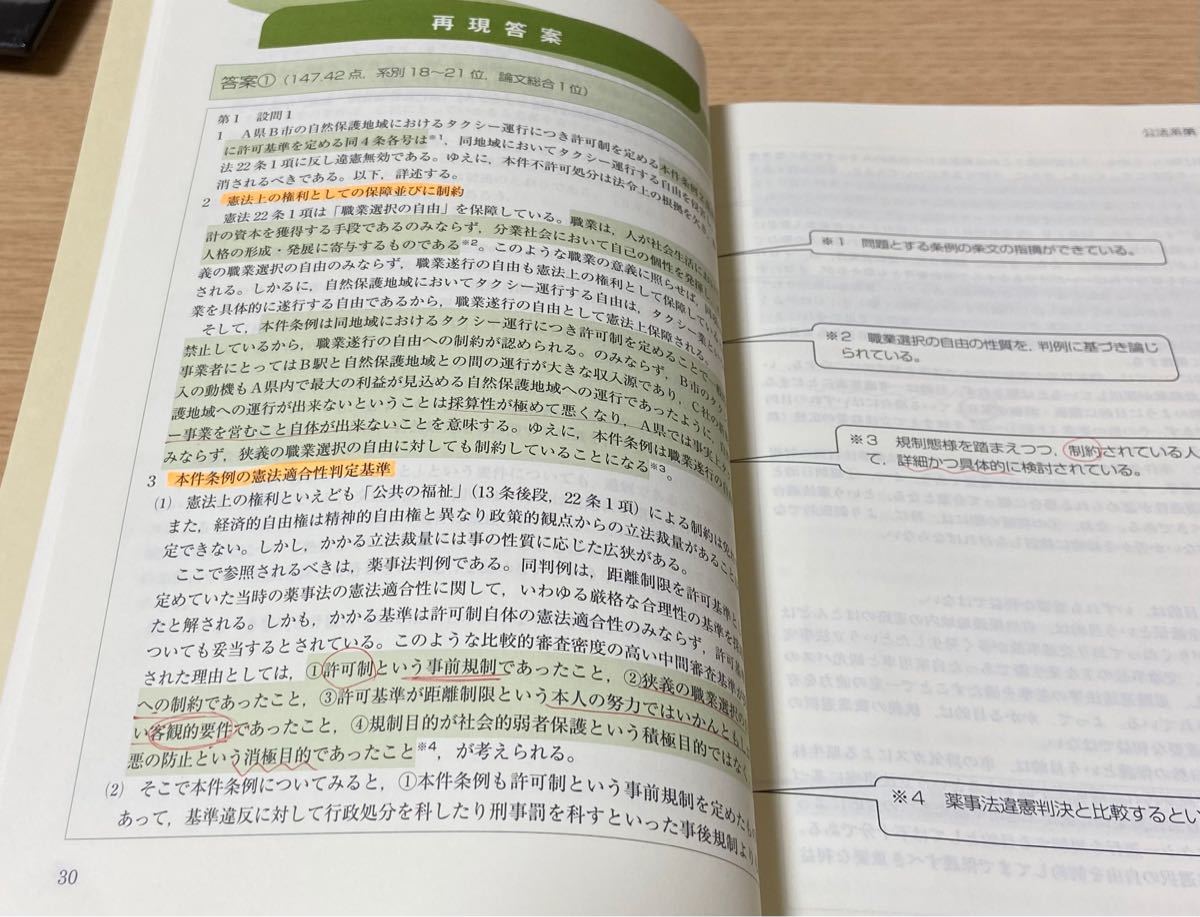 再現答案
答案①(147.42点，系別18～21位，論文総合1位)
第1 設問1
1 A県B市の自然保護地域におけるタクシー運行につき許可制を定める本件条例
に許可基準を定める同4条各号は※1，同地域においてタクシー運行する自由を
法22条1項に反し違憲無効である。ゆえに，本件不許可処分は法令上の根拠を欠き
消されるべきである。以下，詳述する。
2 憲法上の権利としての保障並びに制約
憲法22条1項は「職業選択の自由」を保障している。職業は，人が社会生活に
計の資本を獲得する手段であるのみならず，分業社会において自己の個性を発揮し
人格の形成・発展に寄与するものである※2。このような職業の意義に照らせば，
義の職業選択の自由のみならず，職業遂行の自由も憲法上の権利として保障
される。しかるに，自然保護地域においてタクシー運行する自由は，タクシー
業を具体的に遂行する自由であるから，職業遂行の自由として憲法上保障される。
そして，本件条例は同地域におけるタクシー運行につき許可制を定めることで
禁止しているから，職業遂行の自由への制約が認められる。のみならず，B市の
事業者にとってはB駅と自然保護地域との間の運行が大きな収入源であり，C社の
入の動機もA県内で最大の利益が見込める自然保護地域への運行であったように，
護地域への運行が出来ないということは採算性が極めて悪くなり，A県では事実上
ー事業を営むこと自体が出来ないことを意味する。ゆえに，本件条例は職業遂行の
みならず，狭義の職業選択の自由に対しても制約していることになる※3。
3 本件条例の憲法適合性判定基準
(1) 憲法上の権利といえども「公共の福祉」(13条後段，22条1項)による制約は
また，経済的自由権は精神的自由権と異なり政策的観点からの立法裁量があること
定できない。しかし，かかる立法裁量には事の性質に応じた広狭がある。
ここで参照されるべきは，薬事法判例である。同判例は，距離制限を許可基準と
定めていた当時の薬事法の憲法適合性に関して，いわゆる厳格な合理性の基準を
たと解される。しかも，かかる基準は許可制自体の憲法適合性のみならず，許可基
ついても妥当するとされている。このような比較的審査密度の高い中間審査基準が
された理由としては，①許可制という事前規制であったこと，②狭義の職業選択の
への制約であったこと，③許可基準が距離制限という本人の努力ではいかんとも
い客観的要件であったこと，④規制目的が社会的弱者保護という積極目的ではなく
悪の防止という消極目的であったこと※4，が考えられる。
(2) そこで本件条例についてみると，①本件条例も許可制という事前規制を定めたも
あって，基準違反に対して行政処分を科したり刑事罰を科すといった事後規制より
30
公法系第
※1 問題とする条例の条文の指摘ができている。
※2 職業選択の自由の性質を，判例に基づき論じ
られている。
※3 規制態様を踏まえつつ，制約されている人
て，詳細かつ具体的に検討されている。
※4 薬事法違憲判決と比較するとい